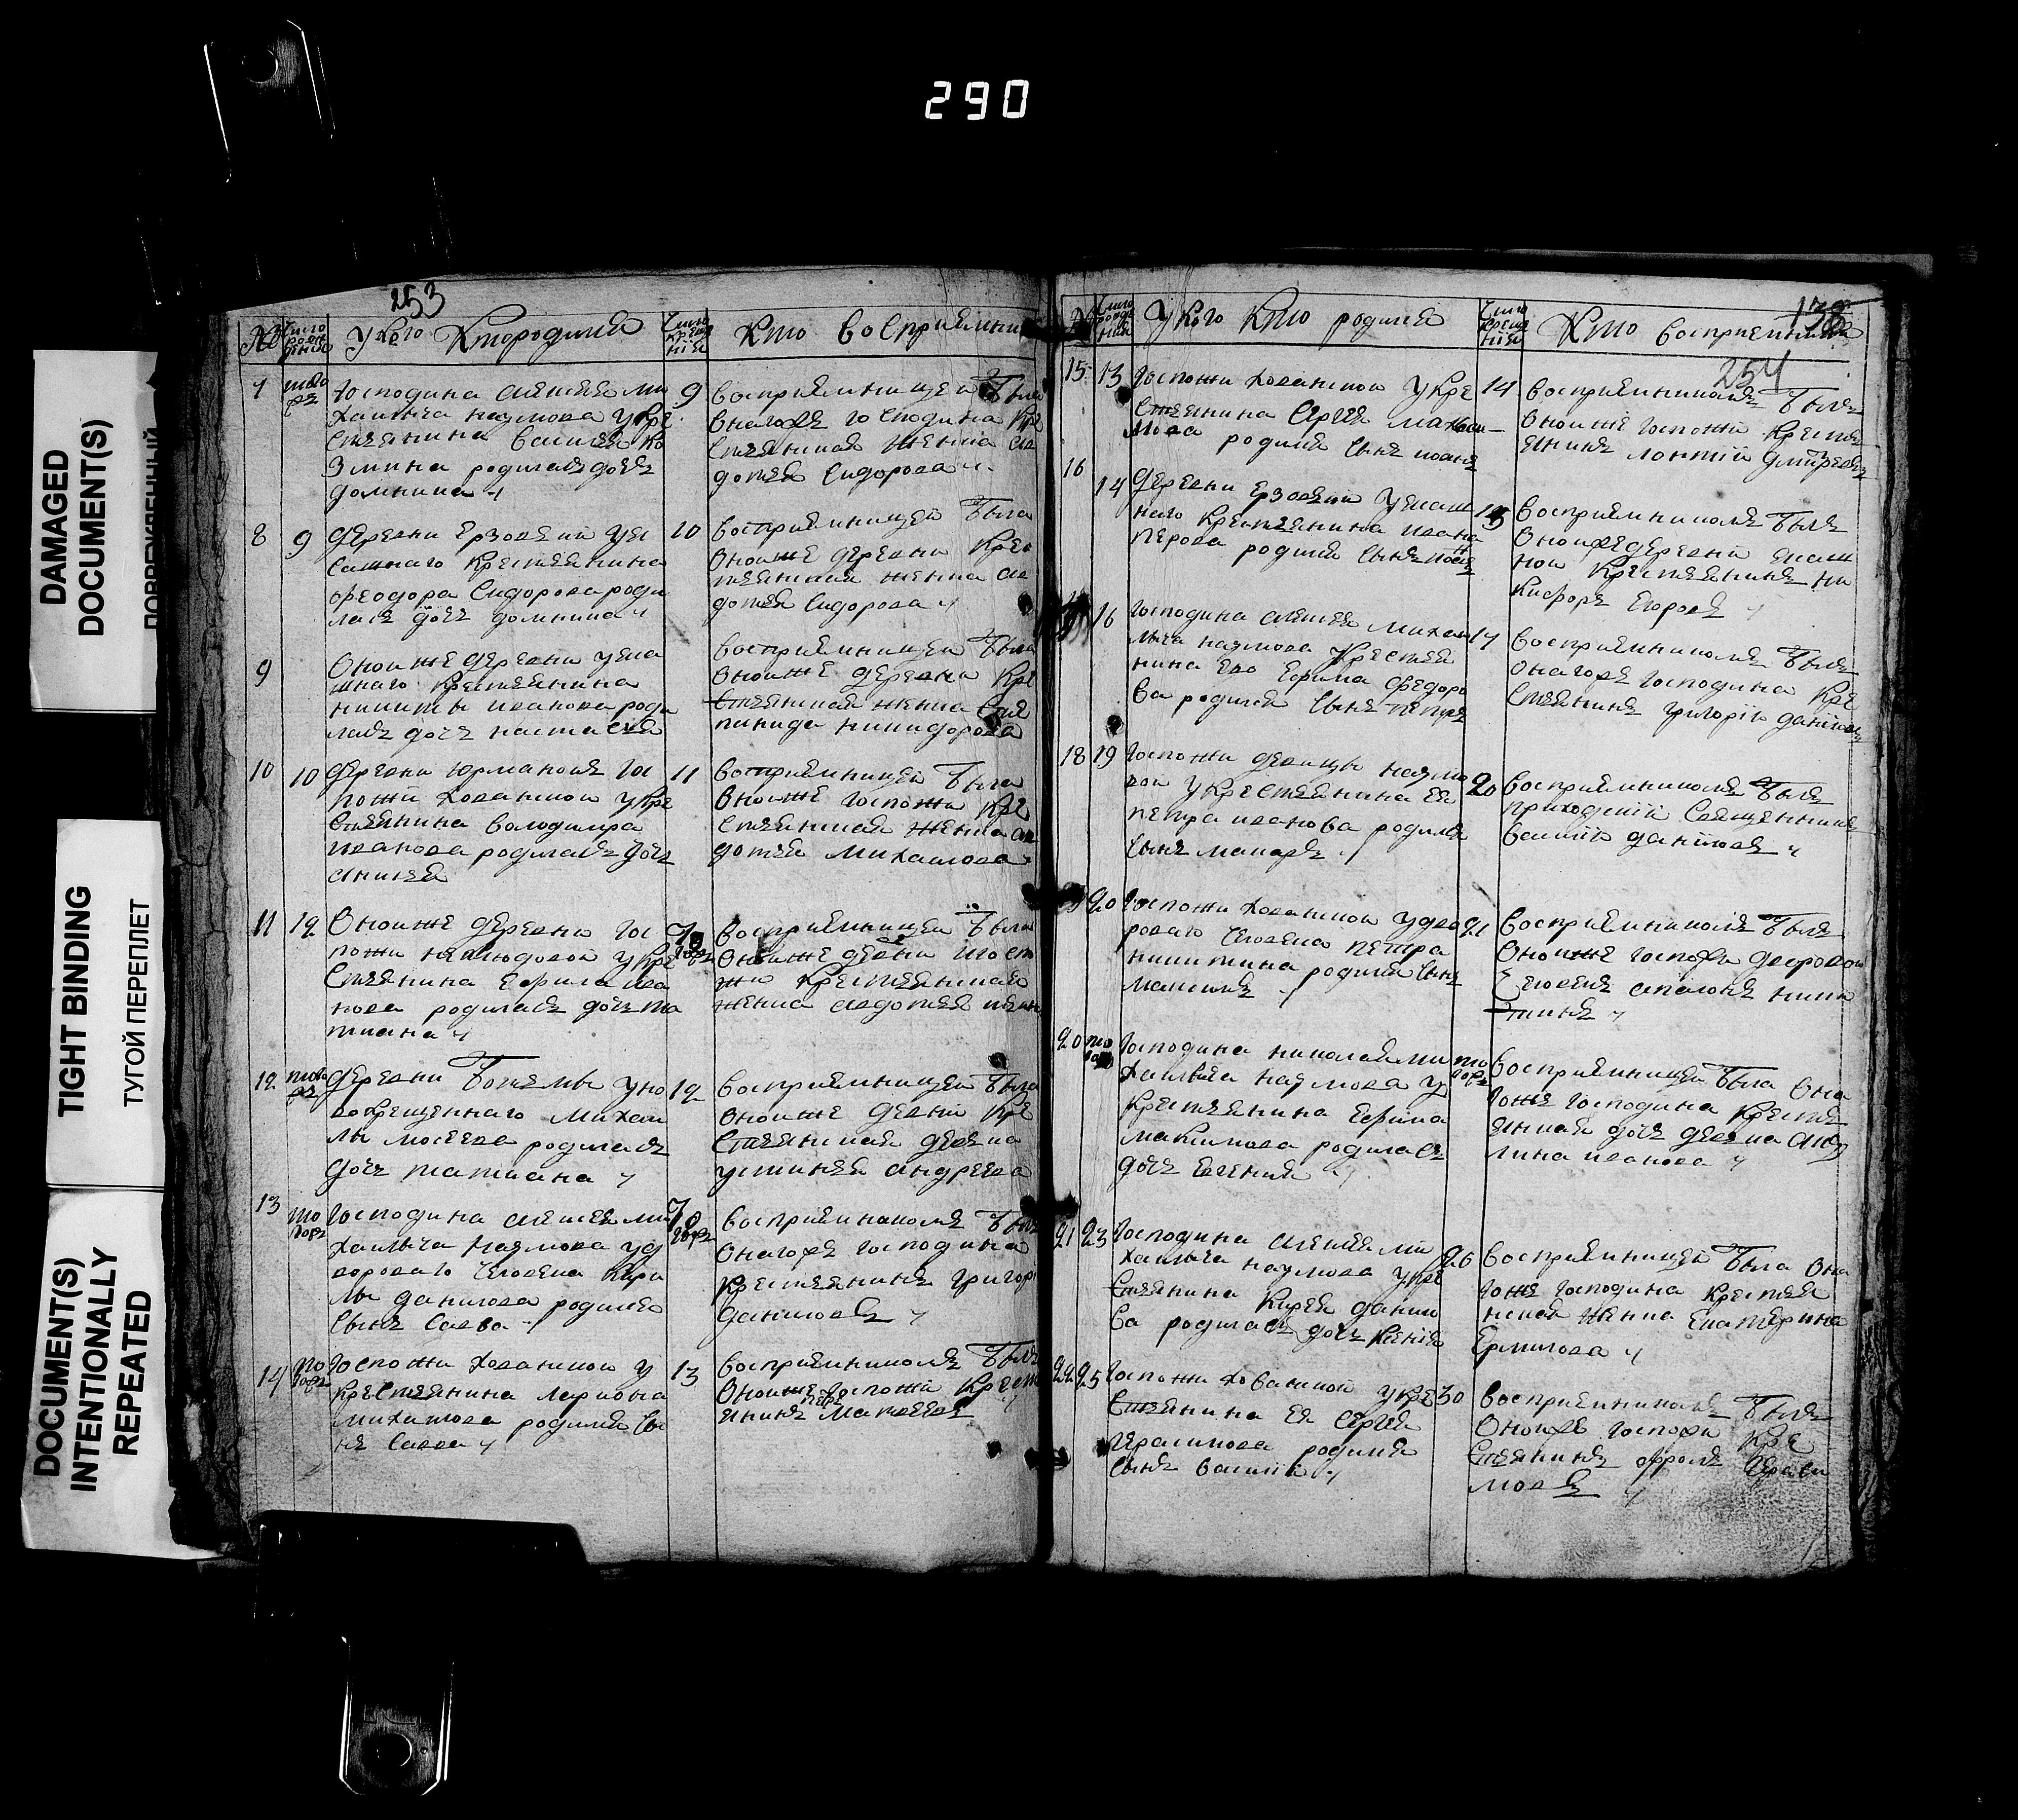 290
DAMAGED
DOCUMENT(S)
TIGHT BINDING
ТУГОЙ ПЕРЕПЛЕТ
DOCUMENT(S)
INTENTIONALLY
REPEATED
253
№ число рожденія У кого Кто родился число крещенія Кто восприемники
7
господина Алексея Ми
хаилыча наумова у кре
стьянина василья ко
змина родилась дочь
домника
9
восприемницей была
онагоже господина кре
стьянская женка ав
дотья Сидорова
8 9
деревни Ерзовки у яса
шнаго крестьянина
феодора Сидорова роди
лась дочь домника
10
восприемницей была
оной же деревни крес
тьянская женка ав
дотья Сидорова
9
Оной же деревни у яса
шнаго крестьянина
никиты иванова роди
лась дочь настасья
восприемницей была
оной же деревни кре
стьянская женка
никифорова
10 10
деревни гос
пожи хованской у кре
стьянина володимира
иванова родилась дочь
анисья
11
восприемницей была
оной же госпожи кре
стьянская женка ав
дотья Михаилова
11 12
Оной же деревни гос
пожи у кре
стьянина Ефима ива
нова родилась дочь та
тиана
того
восприемницей была
оной же
крестьянская
женка авдотья
12
деревни у но
вокрещеннаго Михаи
лы родилась
дочь татиана
12
восприемницей была
оной же деревни кре
стьянская девка
устинья андреева
13 того
господина алексея ми
хаилыча Наумова у д
вороваго человека кири
лы данилова родился
сынъ савва
того
восприемникомъ былъ
онагоже господина
крестьянинъ григорей
даниловъ
14 того
госпожи хованской у
крестьянина лариона
михаилова родился сы
нъ савва
13
восприемникомъ былъ
оной же госпожи крест
янинъ
138
254
У кого Кто родился Кто восприемники
15 13
госпожи хованской у кре
стьянина Сергея макси
мова родился сынъ иоанъ
14
восприемникомъ былъ
оной же госпожи крестья
янинъ Дмитревъ
16 14
деревни Ерзовки у ясаш
наго крестьянина ивана
петрова родился сынъ
15
восприемникомъ былъ
оной же деревни ясаш
ной крестьянинъ ни
кифоръ Егоровъ
16
господина алексея михаи
лыча наумова у крестья
нина Ево Ефима федоро
ва родился сынъ петръ
17
восприемникомъ былъ
онагоже господина кре
стьянинъ григорій даниловъ
18 19
госпожи девицы наумо
вой у крестьянина Ея
петра иванова родился
сынъ макаръ
20
восприемникомъ былъ
приходскій Священникъ
василій даніиловъ
20
госпожи хованской у дво
роваго человека петра
никитина родился сынъ
максимъ
21
восприемникомъ былъ
оной же госпожи дворовой
человекъ ники
тинъ
20 того
господина николая ми
хаилыча наумова у
крестьянина Ефима
максимова родилась
дочь Евгения
того
восприемницей была она
гоже господина крестья
янская дочь девка аку
лина иванова
21 23
господина алексея ми
хаилыча наумова у кре
стьянина данило
ва родилась дочь
26
восприемницей была она
гоже господина крестья
нская женка Екатерина
Ермилова
22 25
госпожи хованской у кре
стьянина Ея Сергея
Герасимова родился
сынъ василій
30
восприемникомъ былъ
оной же госпожи кре
стьянинъ фролъ Гераси
мовъ